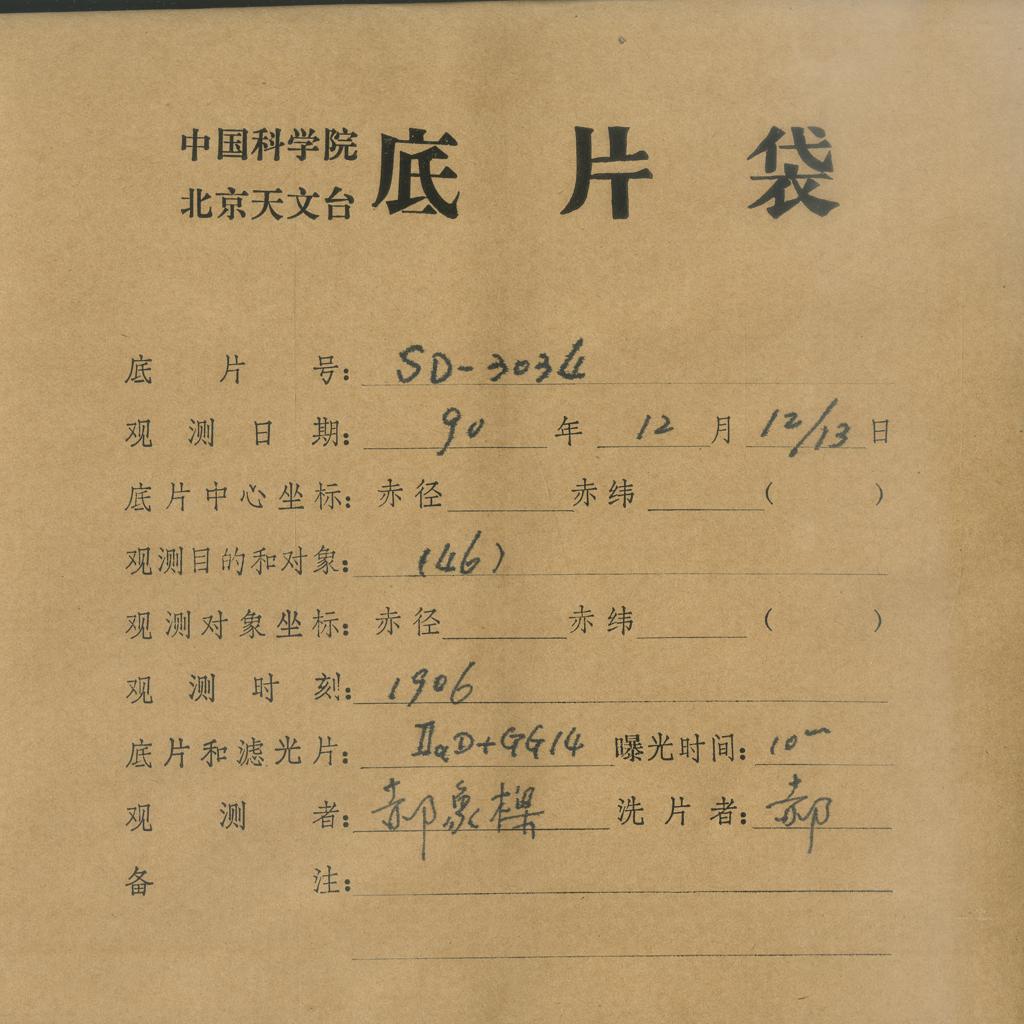 中国科学院
北京天文台
底片袋
底片号：SD-3034
观测日期：90年12月12/13日
底片中心坐标：赤径 赤纬 （ ）
观测目的和对象：（46）
观测对象坐标：赤径 赤纬 （ ）
观测时刻：1906
底片和滤光片：IIaD+GG14 曝光时间：10m
观测者：郝象樑 洗片者：郝
备注：